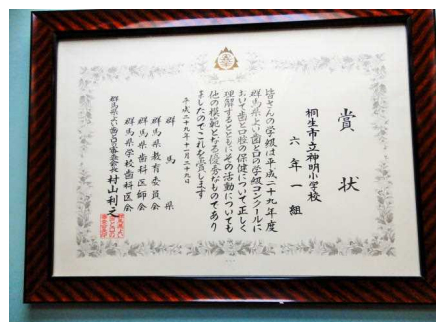 賞状
桐生市立神明小学校
六年一組
皆さんの学級は平成二十九年度
群馬県よい歯と口の学級コンクールに
おいて歯と口腔の保健について正しく
理解するとともにその活動についても
他の模範となる優秀なものであり
ましたのでこれを賞します
平成二十九年十一月二十九日
群馬県
群馬県教育委員会
群馬県歯科医師会
群馬県学校歯科医会
群馬県よい歯と口の審査会長 村山利之